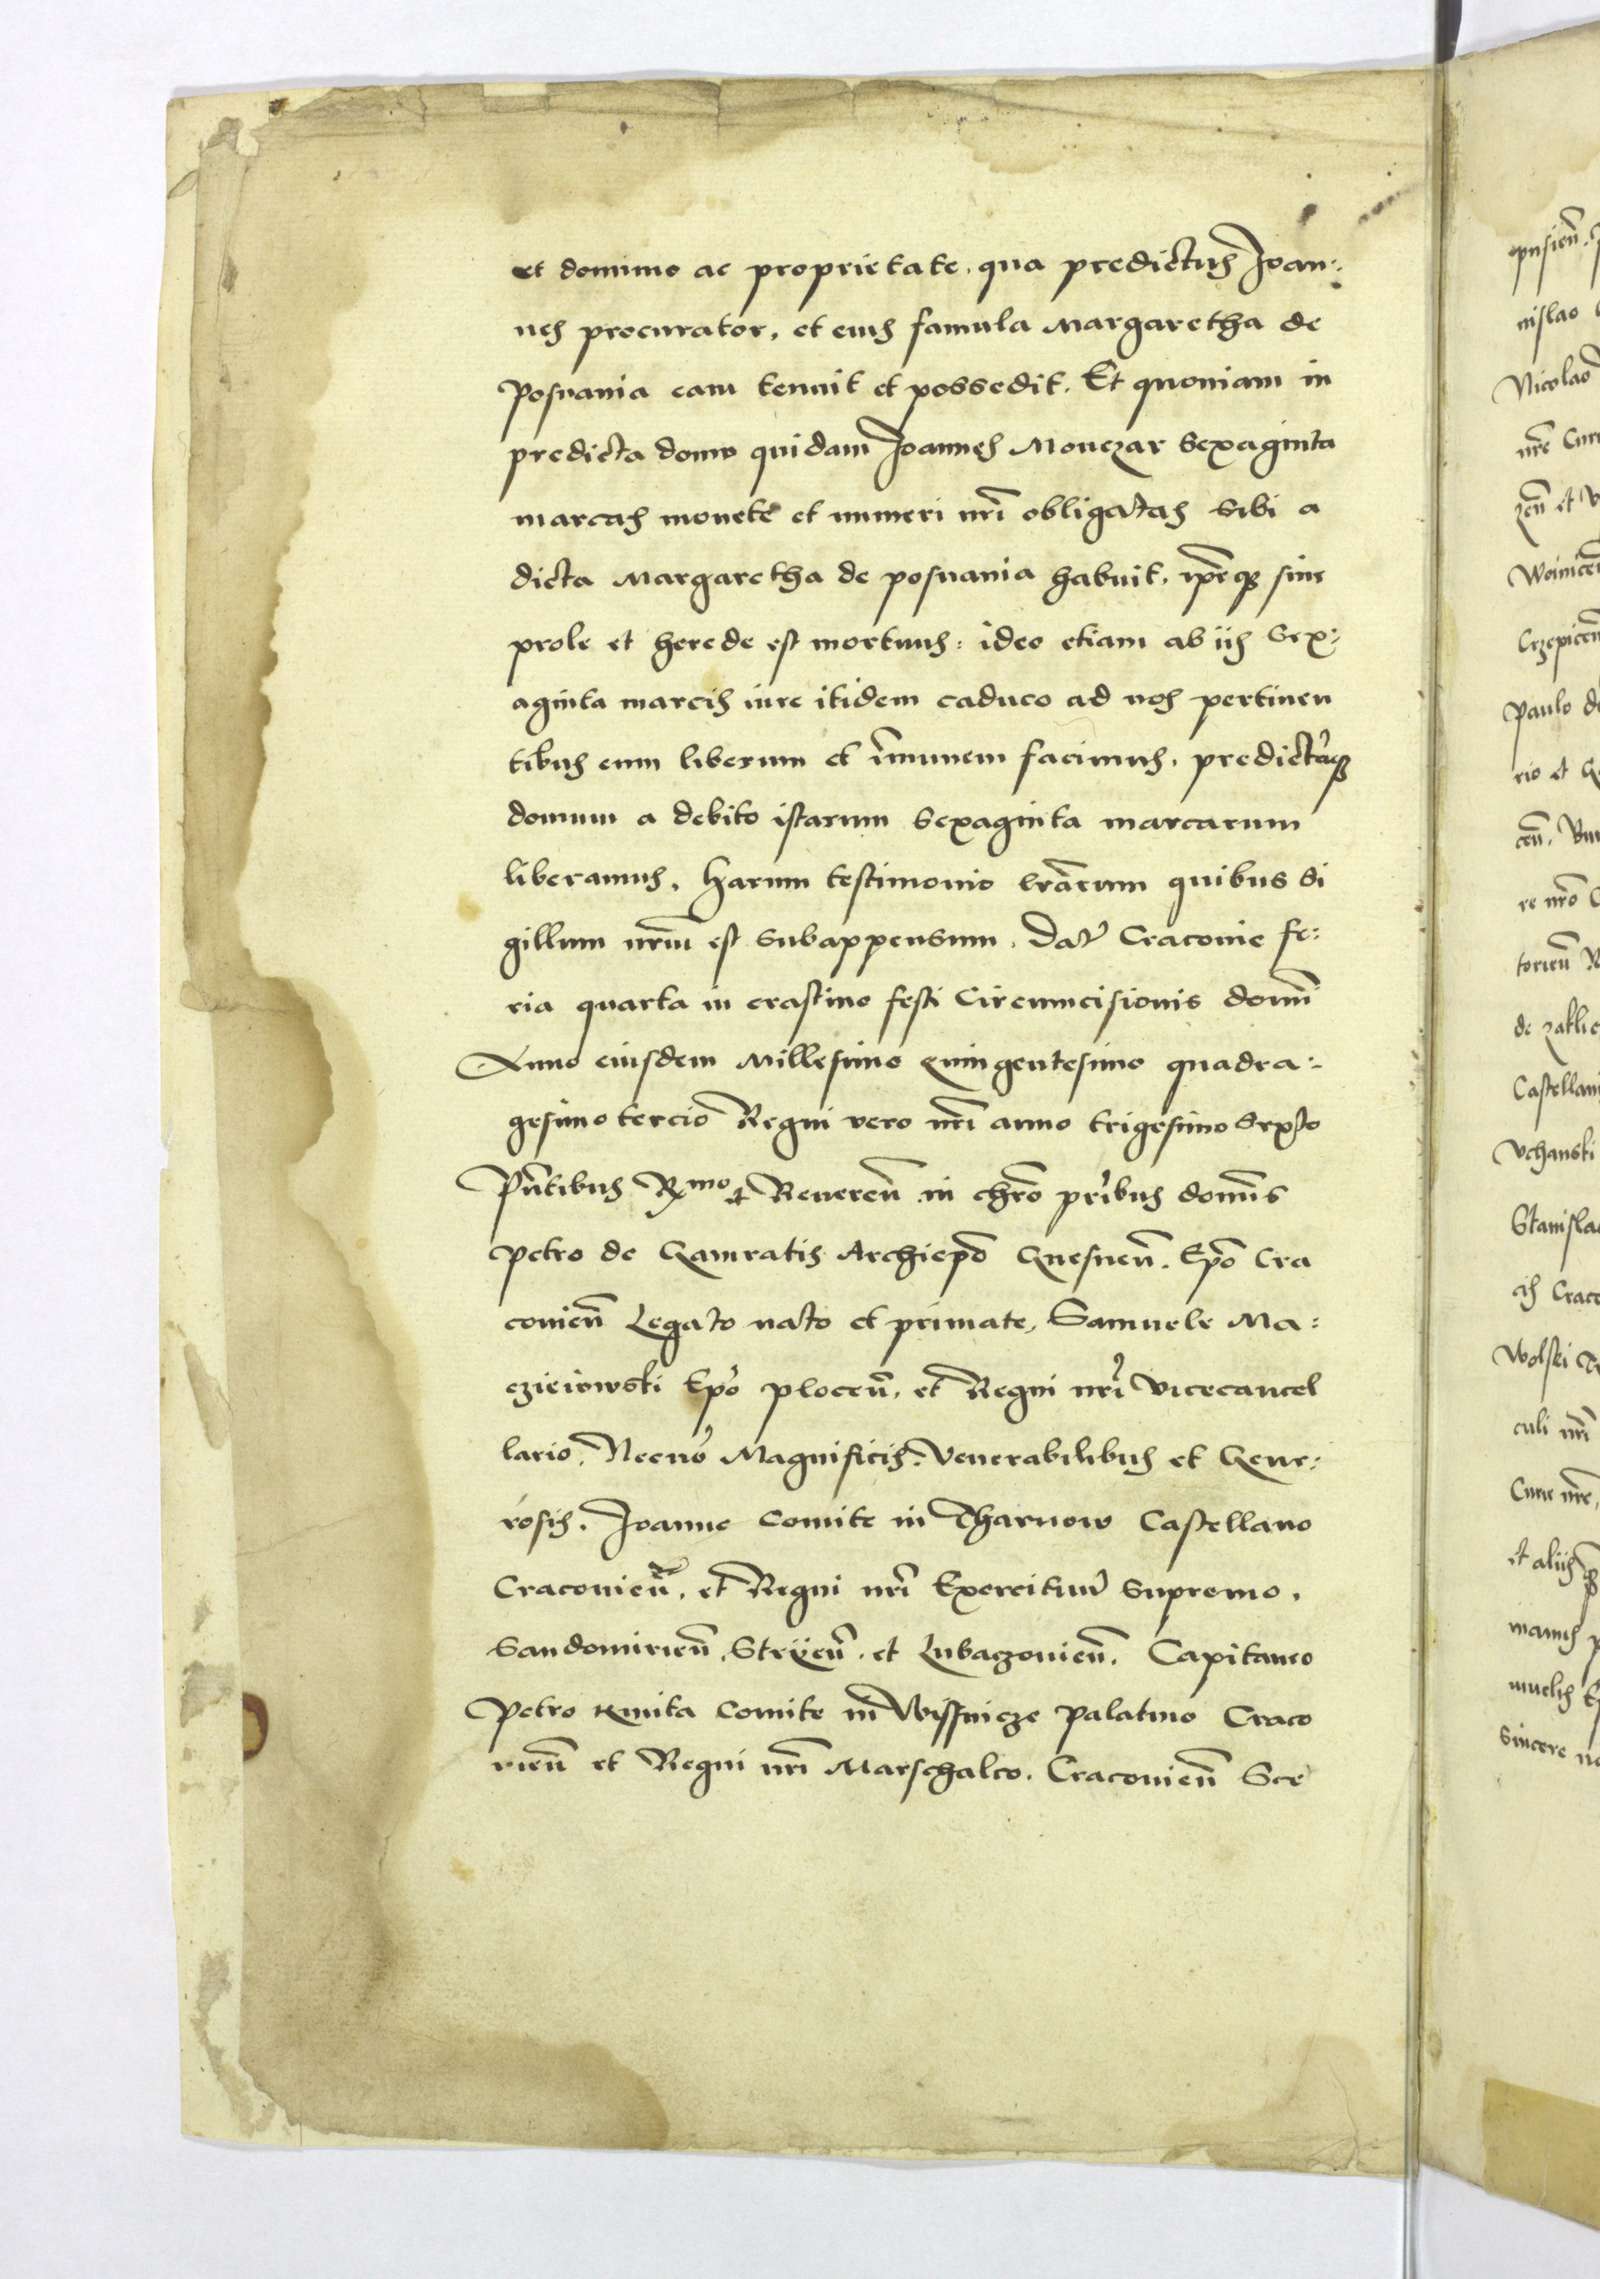 et dominio ac proprietate, qua predictus Joan:
nes procurator, et eius famula Margaretha de
Posnania eam tenuit et possedit. Et quoniam in
predicta domo quidam Joannes Monczar sexaginta
marcas monete et numeri nrī obligatas sibi a
dicta Margaretha de posnania habuit, ipseqꝫ sine
prole et herede est mortuus: ideo etiam ab iis Sex:
aginta marcis iure itidem caduco ad nos pertinen
tibus eum liberum et īmunem facimus, predictāqꝫ
domum a debito istarum sexaginta marcarum
liberamus. Harum testimonio lrārum quibus si
gillum nrūm est subappensum. Dat Craconie fe:
ria quarta in crastino festi Circumcisionis domī
Anno eiusdem Millesimo quingentesimo quadra:
gesimo tercio Regni vero nrī anno trigesimo Sexto
Pn̄tibus Rmo et Reueren̄ in chrō prībus domīs
Petro de Gamratis Archiepō Gnesnen̄. Epō Cra
covien̄ Legato nato et primate, Samuele Ma:
czieiowski Epō plocen̄, et Regni nrī Vicecancel
lario, Necnō Magnificis, Venerabilibus et Gene:
rosis. Joanne Comite in Tharnow Castellano
Cracovien̄, et Regni nrī Exercituū supremo,
Sandomirien̄, Stryen̄. et Lubaczovien̄. Capitaneo
Petro Kmita Comite in Wissnicze palatino Craco
vien̄ et Regni nrī Marschalco. Cracovien̄ Sce
nislao
Nicolao
nrē Cur
zen̄ et
Woinicen̄
Crzepicen̄
Paulo de
rio et
cen̄.
re nrō
torien̄
de zaklic
Castellani
Vchanski
Stanislao
Wolski
culi nrī
Curie nrē,
et aliis
sincere